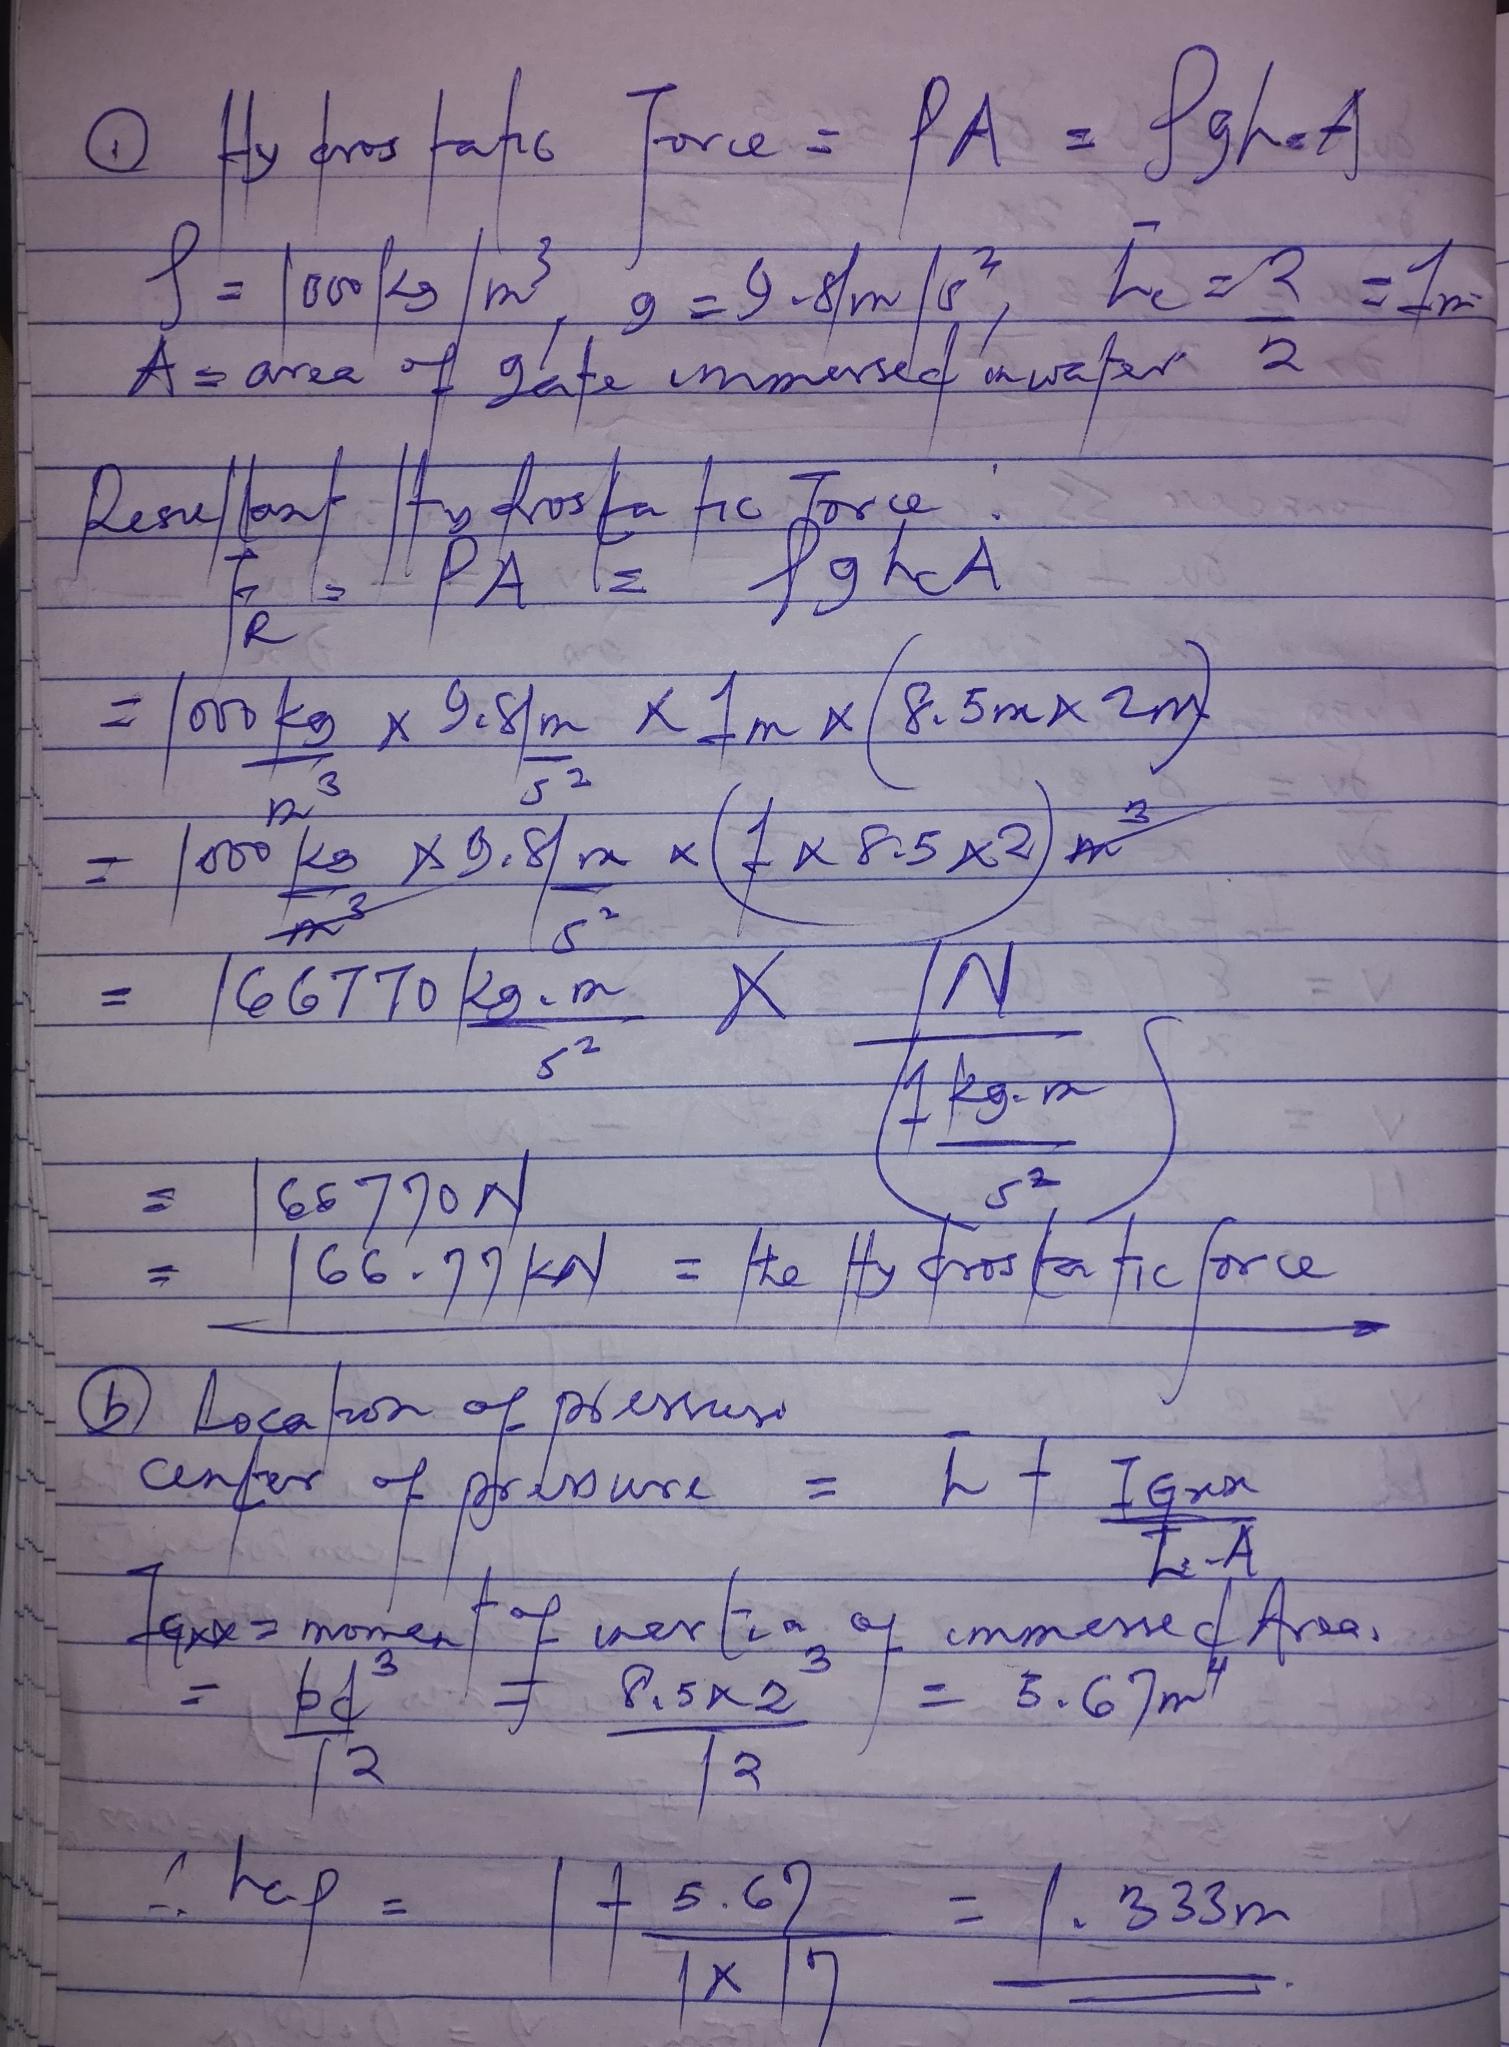 ① Hydrostatic Force = PA = ρghcA
ρ = 1000kg/m³, g = 9.81m/s², h̄c = 2/2 = 1m
A = area of gate immersed in water
Resultant Hydrostatic Force:
F_R = PA = ρghcA
= 1000 kg/m³ x 9.81 m/s² x 1m x (8.5m x 2m)
= 1000 kg/m³ x 9.81 m/s² x (1 x 8.5 x 2) m³
= 166770 kg.m/s² X 1N/(1 kg.m/s²)
= 166770N
= 166.77kN = the Hydrostatic force
ⓑ Location of pressure
center of pressure = h̄ + IGxx/h̄.A
IGxx = moment of inertia of immersed Area.
= bd³/12 = 8.5x2³/12 = 5.67m⁴
∴ hcp = 1 + 5.67/1x17 = 1.333m